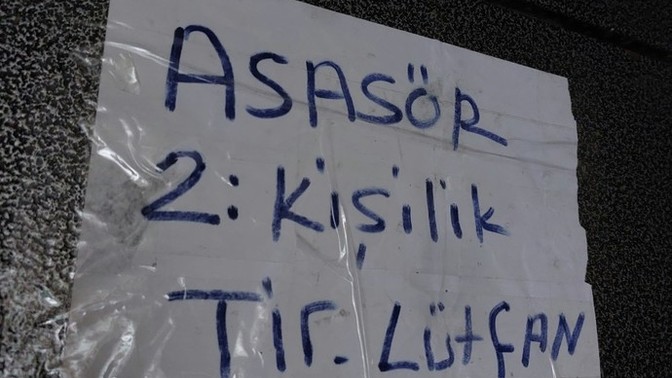 ASASÖR
2: Kişilik
Tir. LütfAN